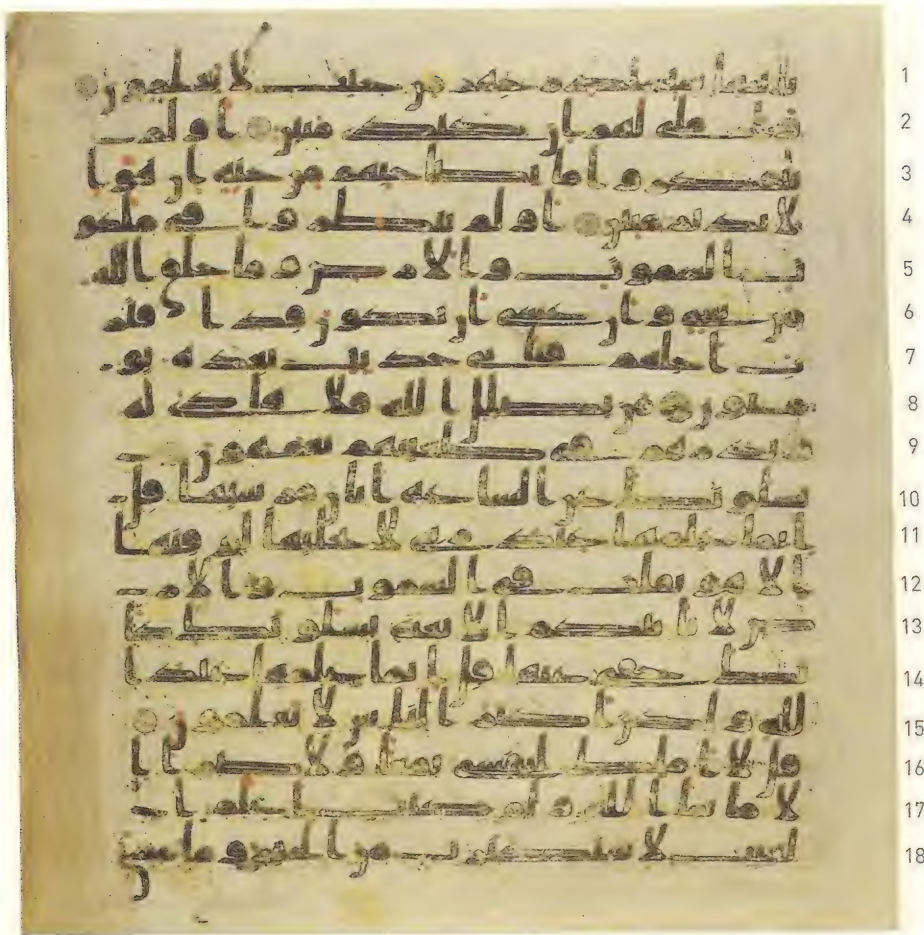 بايتنا سنستدرجهم من حيث لا يعلمون 1
واملي لهم ان كيدي متين اولم 2
يتفكروا ما بصاحبهم من جنة ان هو ا 3
لا نذير مبين اولم ينظروا في ملكو 4
ت السموت والارض وما خلق الله 5
من شي وان عسى ان يكون قد اقتر 6
ب اجلهم فباي حديث بعده يو 7
منون من يضلل الله فلا هادي له 8
ويذرهم في طغينهم يعمهون 9
يسلونك عن الساعة ايان مرسيها قل 10
انما علمها عند ربي لا يجليها لوقتها 11
الا هو ثقلت في السموت والار 12
ض لا تاتيكم الا بغتة يسلونك كا 13
نك حفي عنها قل انما علمها عند ا 14
لله ولكن اكثر الناس لا يعلمون 15
قل لا املك لنفسي نفعا ولا ضرا ا 16
لا ما شا الله ولو كنت اعلم ا 17
لغيب لاستكثرت من الخير وما مسني 18